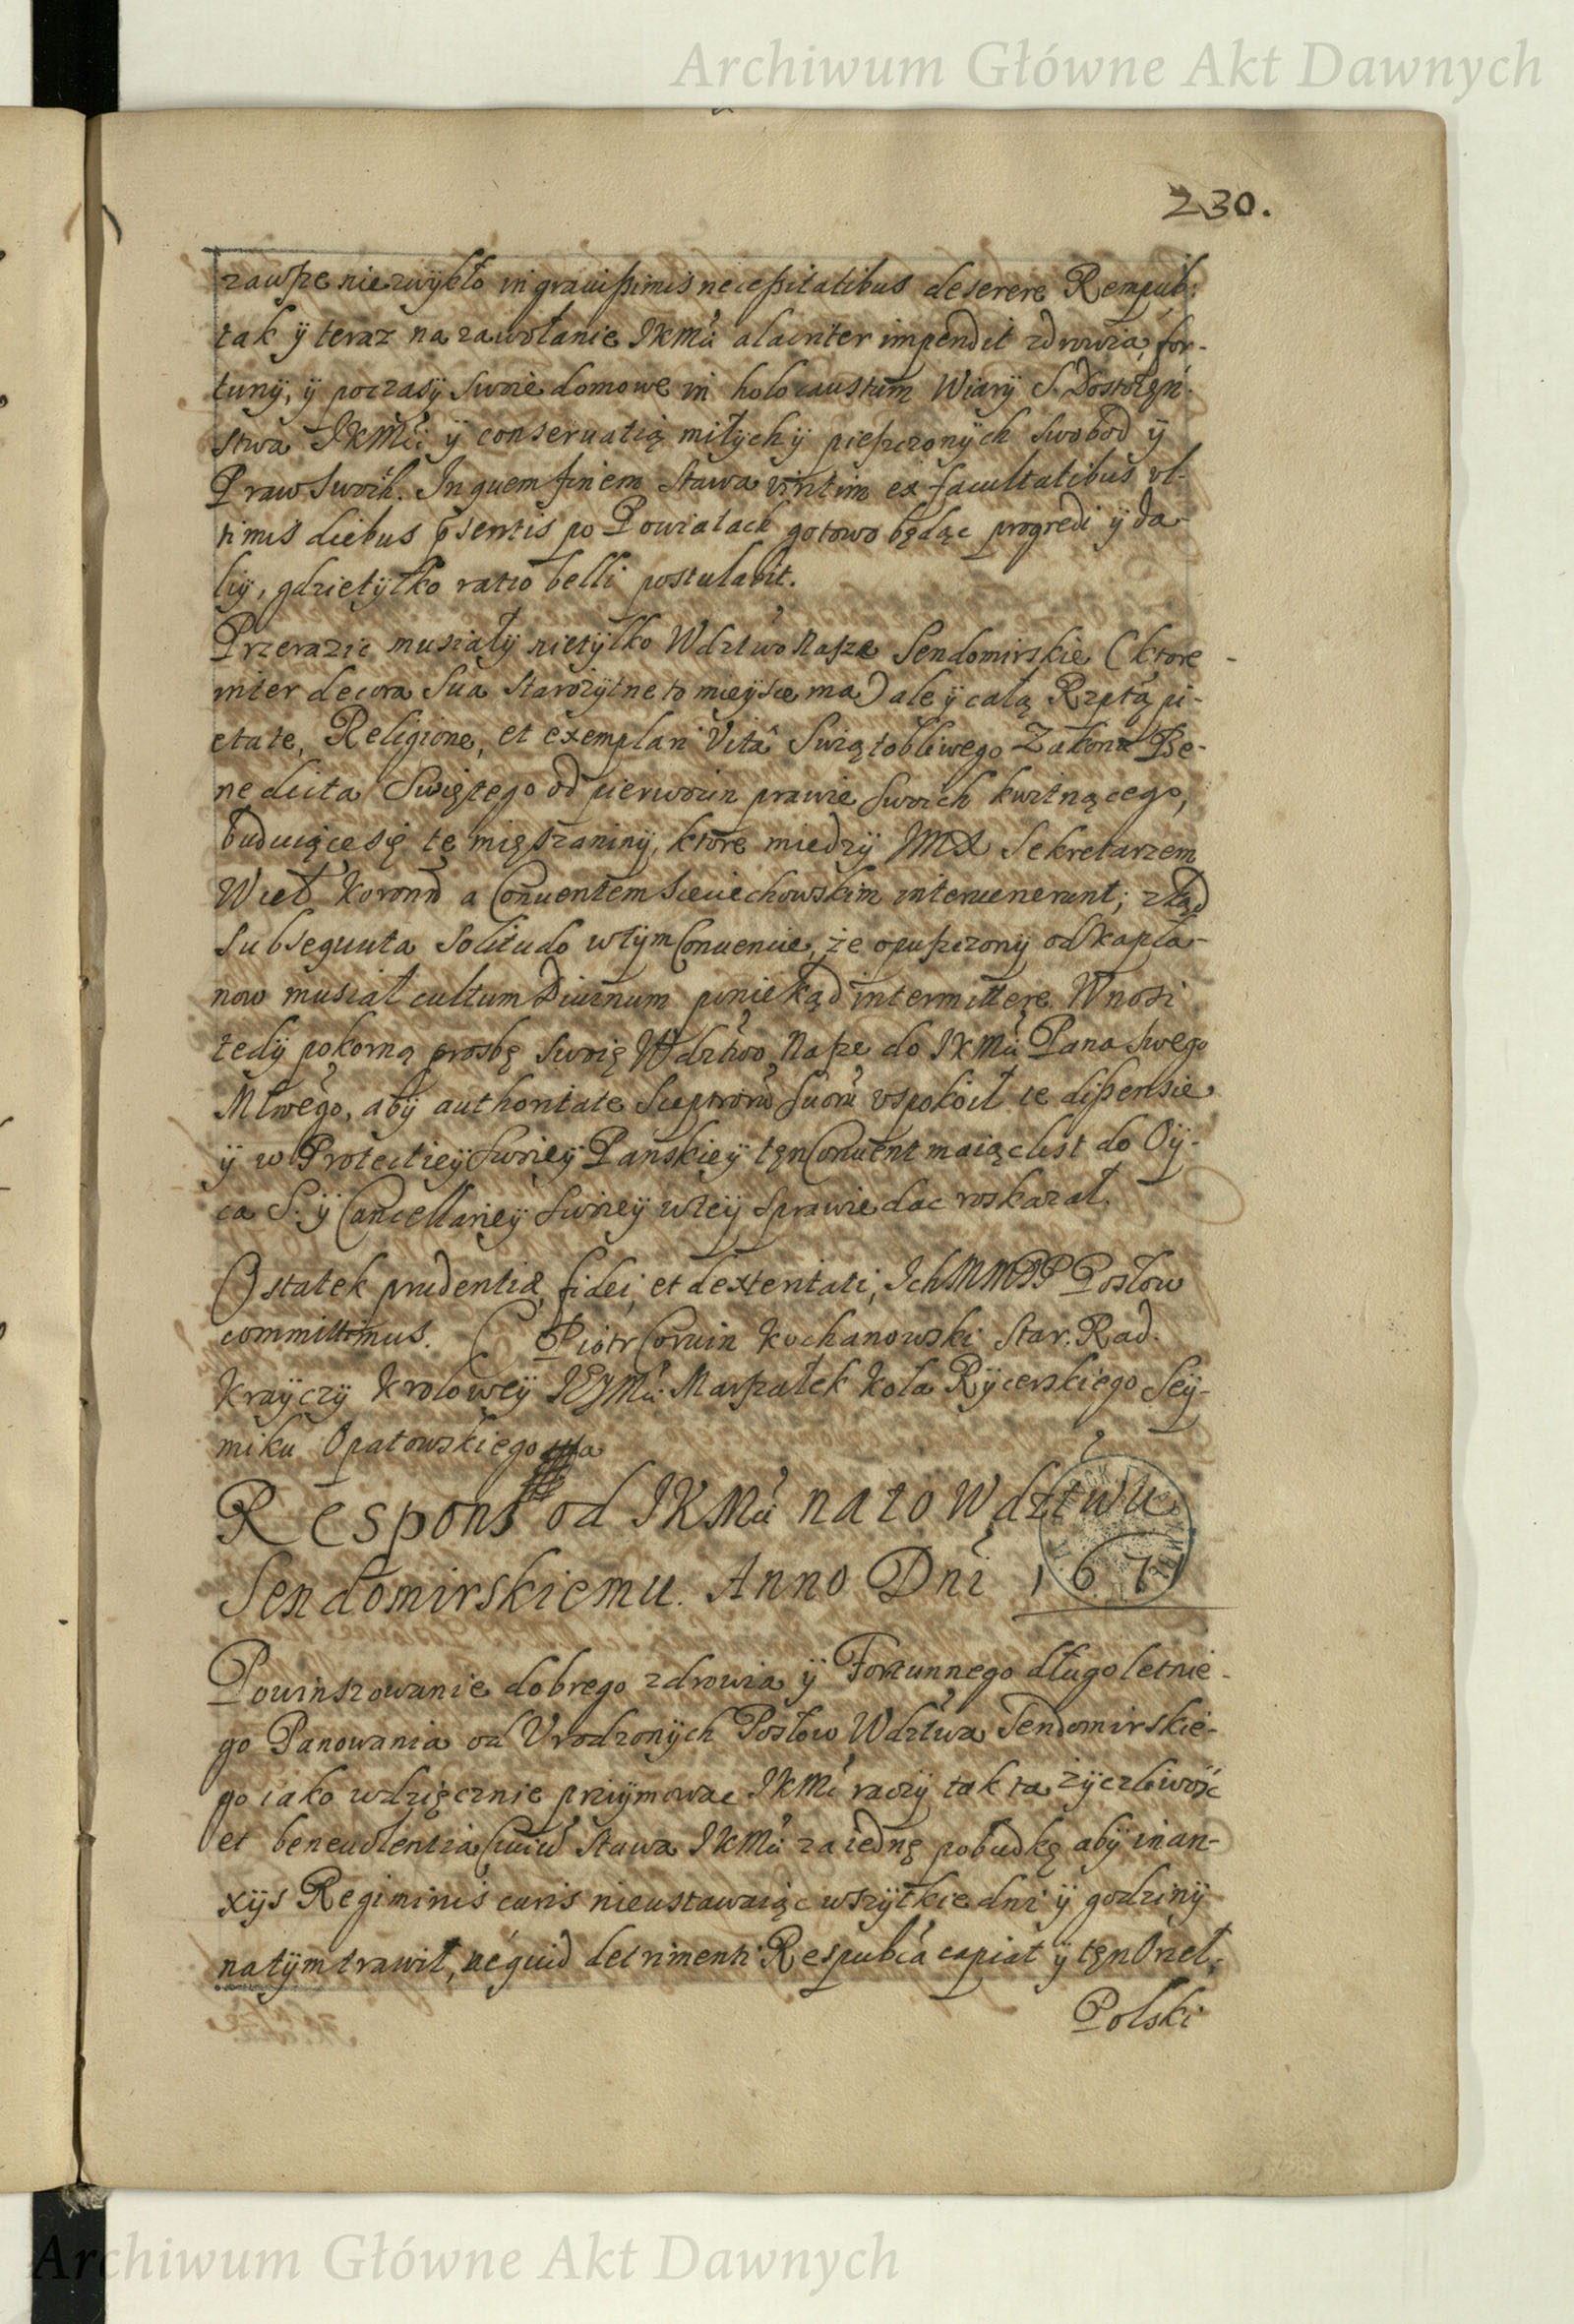 Archiwum Główne Akt Dawnych
230.
zawsze niezwykło in gravissimis necessitatibus deserere Rempub:
tak ÿ teraz na zawołanie JKMci alacriter impendit zdrowia, for-
tunÿ, ÿ poczasÿ swoie domowe in holocaustum Wiarÿ S. Dostoięń-
stwa JKMci ÿ conseruatią miłÿch ÿ pieszczonÿch swobod ÿ
Praw swoich. In quem finem stawa viritim ex facultatibus vl-
timis diebus pñsentis po Powiatach gotowo będąc progredi ÿ da-
liÿ, gdzietÿlko ratio belli postulabit.
Przerazic musiałÿ nietÿlko Wdztwo Nasze Sendomirskie (ktore
inter decora sua starożÿtne to mieÿsce ma) ale ÿ całą Rzptą pi-
etate, Religione, et exemplari Vitâ Swiątobliwego Zakonu Be-
nedicta Swiętego od pierwocin prawie swoich kwitnącego,
buduiące się te mięszaninÿ, ktore miedzÿ JMX Sekretarzem
Wiel Koronn a Conuentem Sieciechowskim interuenerunt; zkąd
subsequuta solitudo wtÿm Conuencie, że opuszczonÿ od kapła-
now musiał cultum Diuinum poniekąd intermittere. Wnosi
tedÿ pokorną prosbę swoię Wdztwo Nasze do JKMci Pana swego
Mlwego, abÿ authoritate Sceptrorũ suorũ vspokoił te dissensie
ÿ w Protectieÿ swoieÿ Panskieÿ tęn Conuent maiąc list do Oÿ-
ca S. ÿ Cancellarieÿ swoieÿ wteÿ sprawie dac roskazał.
Ostatek prudentiæ, fidei, et dexteritati, Ich MMPP Posłow
committimus. Piotr Coruin Kochanowski Star. Rad.
Kraÿczÿ Kroloweÿ JEJMci Marszałek Koła Rÿcerskiego Seÿ-
miku Opatowskiego
Respons od JKMci na to Wdztwu
Sendomirskiemu. Anno Dni 167
Powinszowanie dobrego zdrowia ÿ Fortunnego długoletnie-
go Panowania od Vrodzonÿch Posłow Wdztwa Sendomirskie-
go iako wdzięcznie przÿimowac JKMć raczÿ tak ta zÿczliwość
et beneuolentia Ciuiũ stawa JKMci za iednę pobudkę abÿ in an-
xijs Regiminis curis nieustawaiąc wszÿtkie dni ÿ godzinÿ
natÿm trawił, ne quid detrimenti Respubca capiat ÿ tęn Orzeł,
Polski
Archiwum Główne Akt Dawnych